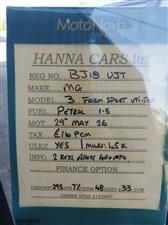 MotoNovo
FINANCE
HANNA CARS ltd
REG NO. BJ18 UJT
MAKE MG
MODEL 3 FORM SPORT VTI-TECH
FUEL PETROL 1.5
MOT 29TH MAY 26
TAX £16 PCM
ULEZ YES 1 MILES: 45K
INFO. 2 KEYS, ALLOYS, 40+MPG
FINANCE OPTION
DEPOSIT: 295 TERM 48 COST: 33 P/W